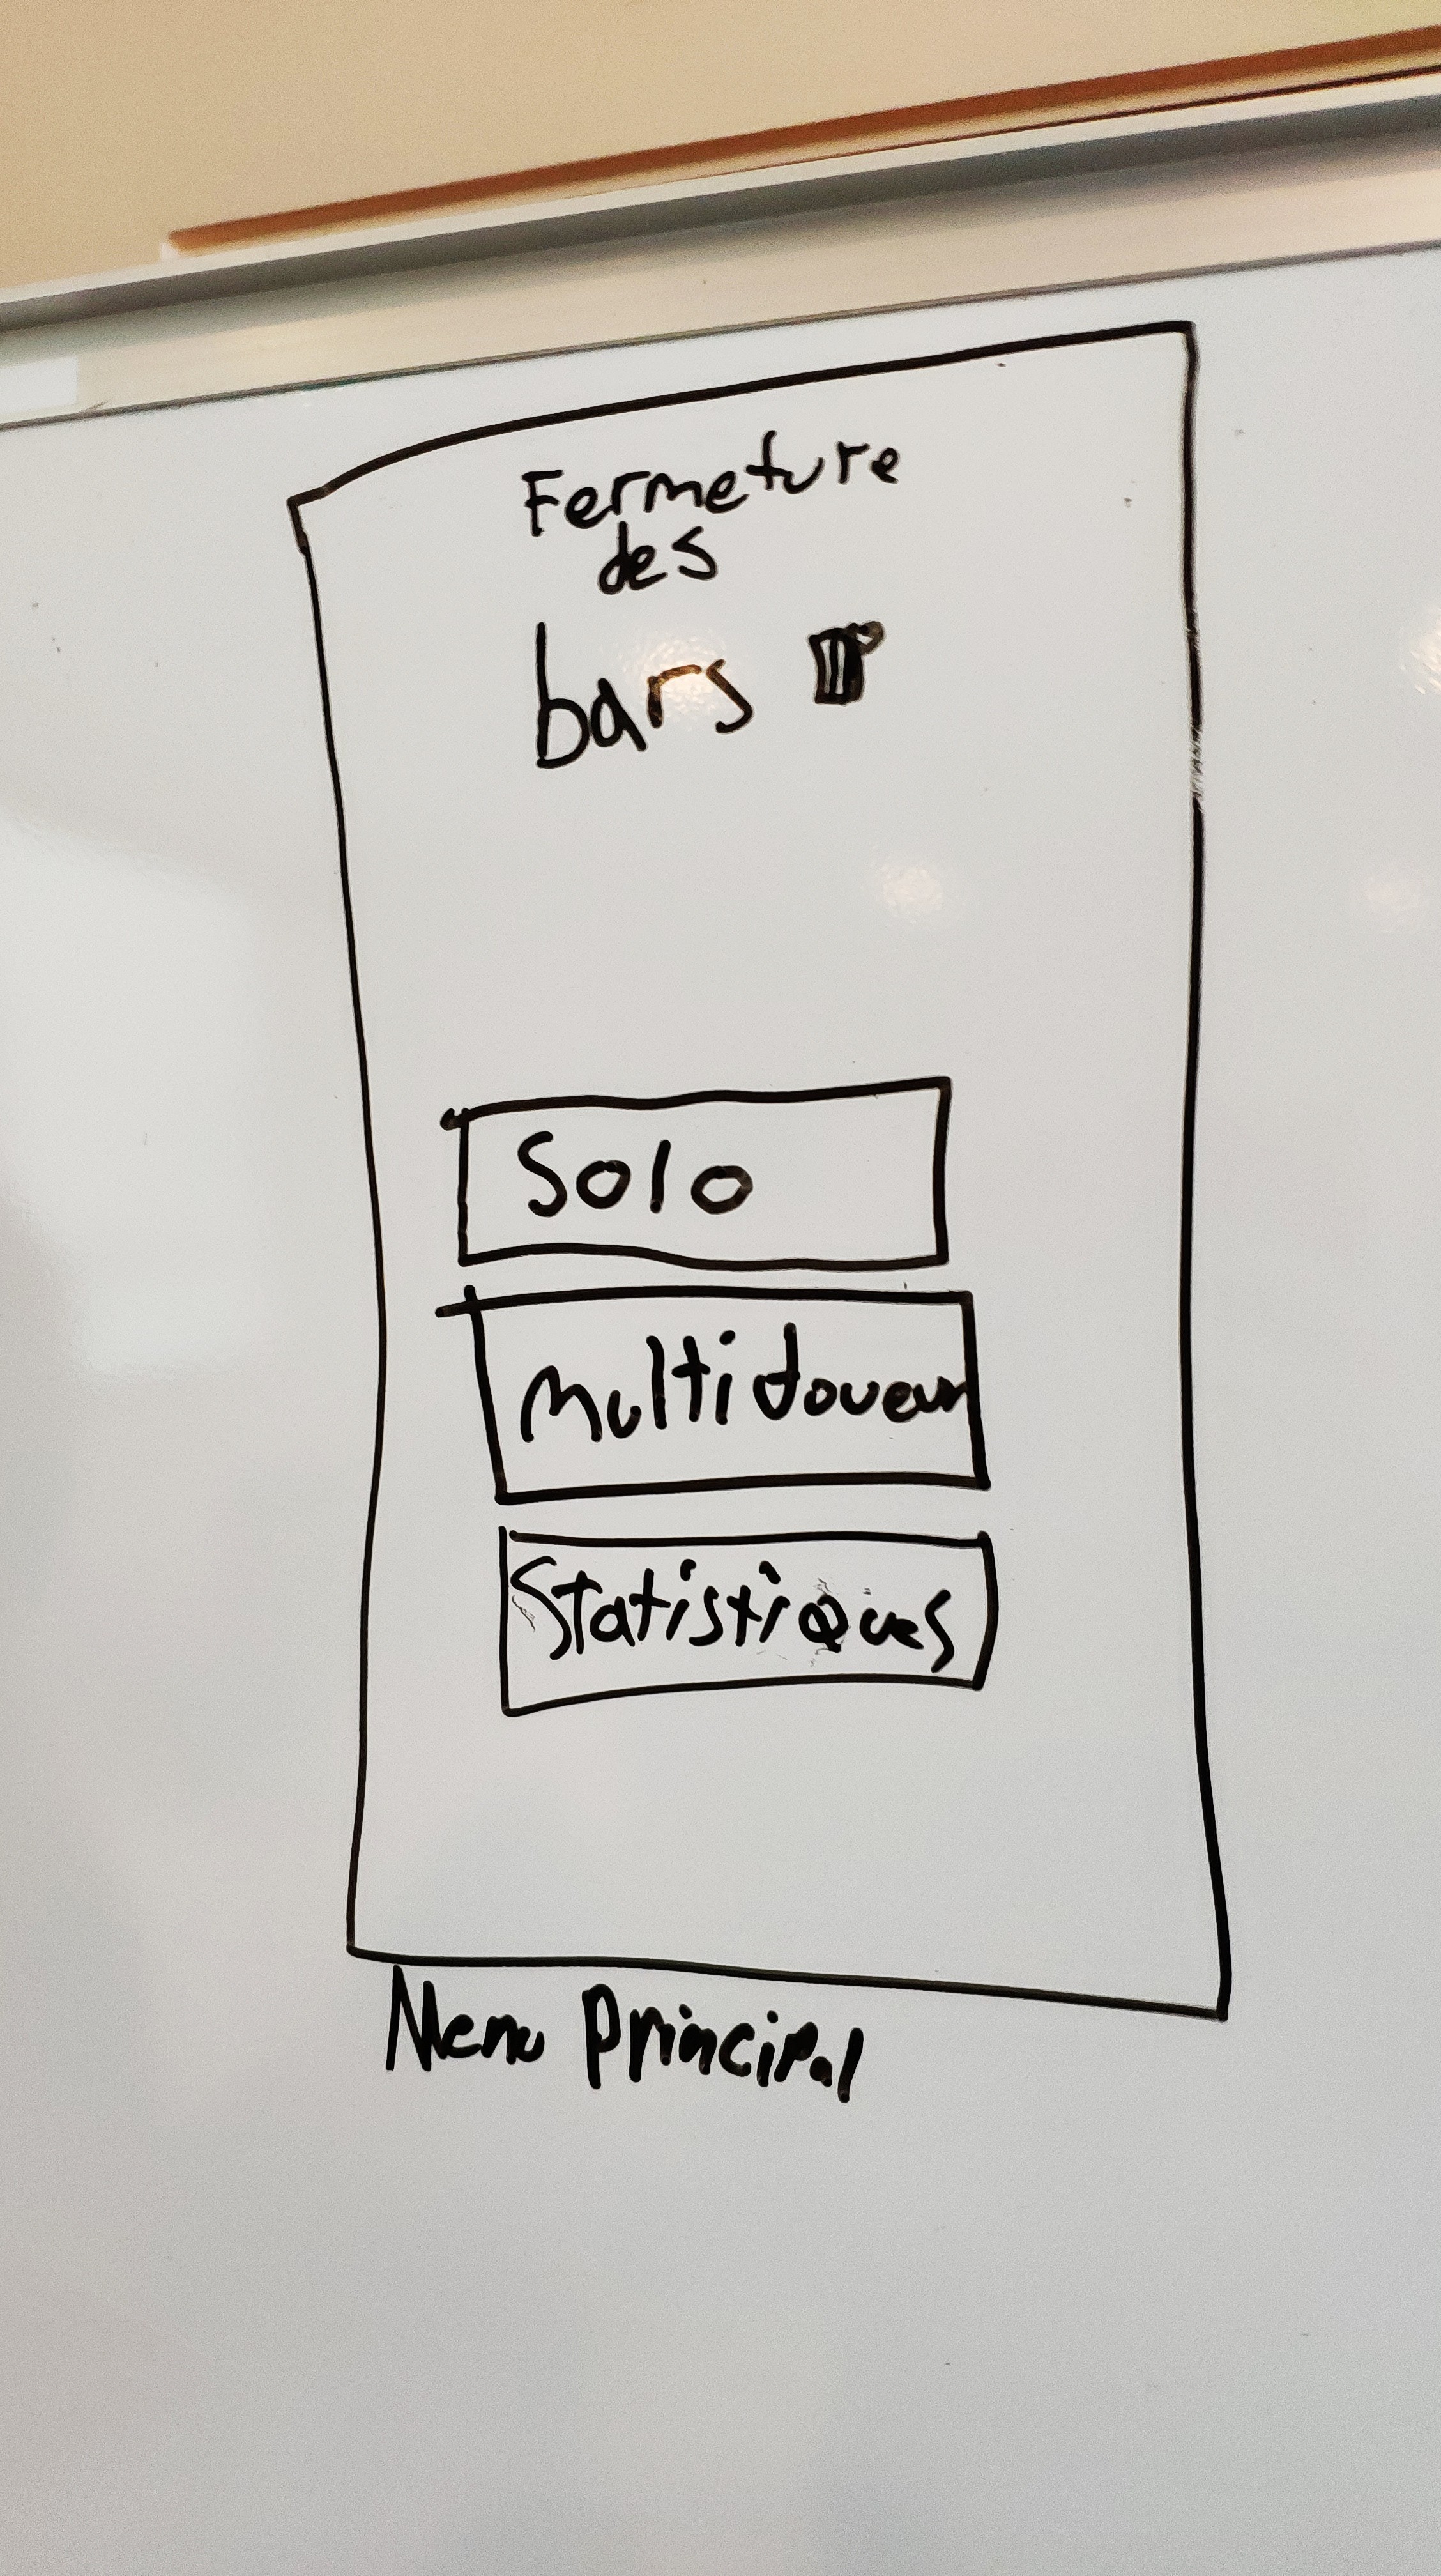 Fermeture
des
bars
Solo
Multijoueur
Statistiques
Menu Principal